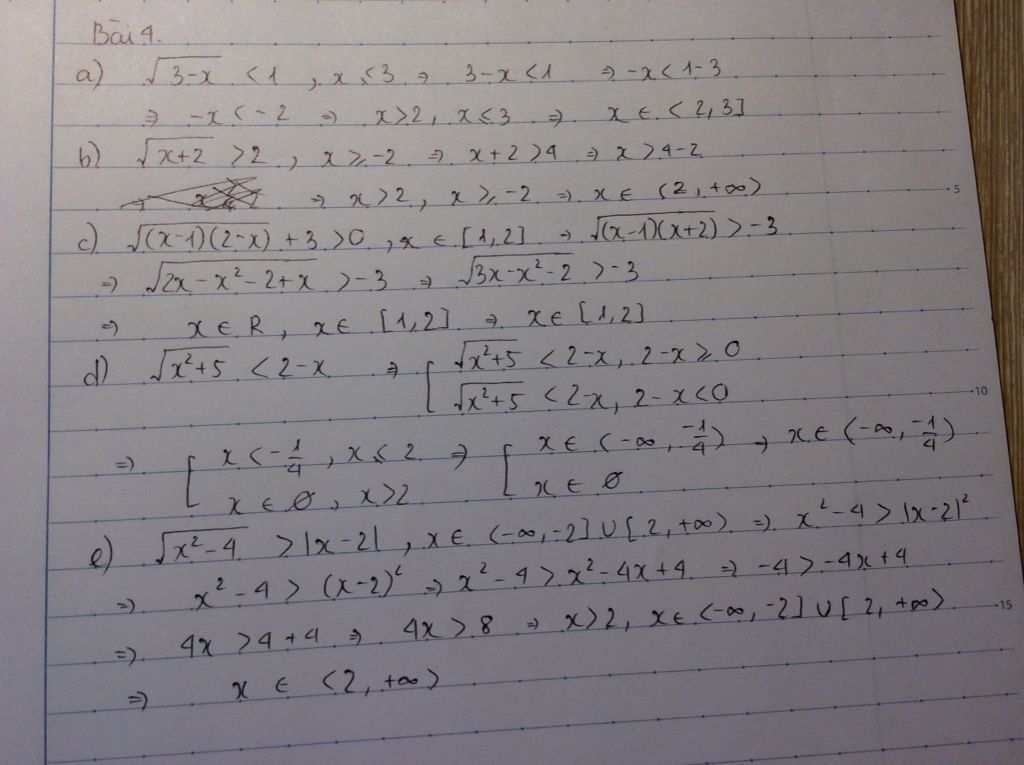 Bài 4.
a) √(3-x) < 1 , x ≤ 3 ⇒ 3-x < 1 ⇒ -x < 1-3
⇒ -x < -2 ⇒ x > 2, x ≤ 3 ⇒ x ∈ (2, 3]
b) √(x+2) > 2 , x ≥ -2 ⇒ x+2 > 4 ⇒ x > 4-2
⇒ x > 2 , x ≥ -2 ⇒ x ∈ (2, +∞)
5
c) √((x-1)(2-x)) + 3 > 0 , x ∈ [1,2] ⇒ √((x-1)(x+2)) > -3
⇒ √(2x - x² - 2 + x) > -3 ⇒ √(3x - x² - 2) > -3
⇒ x ∈ R , x ∈ [1,2] ⇒ x ∈ [1,2]
d) √(x²+5) < 2-x ⇒ [ √(x²+5) < 2-x, 2-x ≥ 0
√(x²+5) < 2-x, 2-x < 0
10
⇒ [ x < -1/4 , x ≤ 2 ⇒ [ x ∈ (-∞, -1/4) ⇒ x ∈ (-∞, -1/4)
x ∈ ∅ , x > 2 x ∈ ∅
e) √(x²-4) > |x-2| , x ∈ (-∞, -2] ∪ [2, +∞) ⇒ x²-4 > |x-2|²
⇒ x²-4 > (x-2)² ⇒ x²-4 > x²-4x+4 ⇒ -4 > -4x+4
⇒ 4x > 4+4 ⇒ 4x > 8 ⇒ x > 2, x ∈ (-∞, -2] ∪ [2, +∞)
15
⇒ x ∈ (2, +∞)